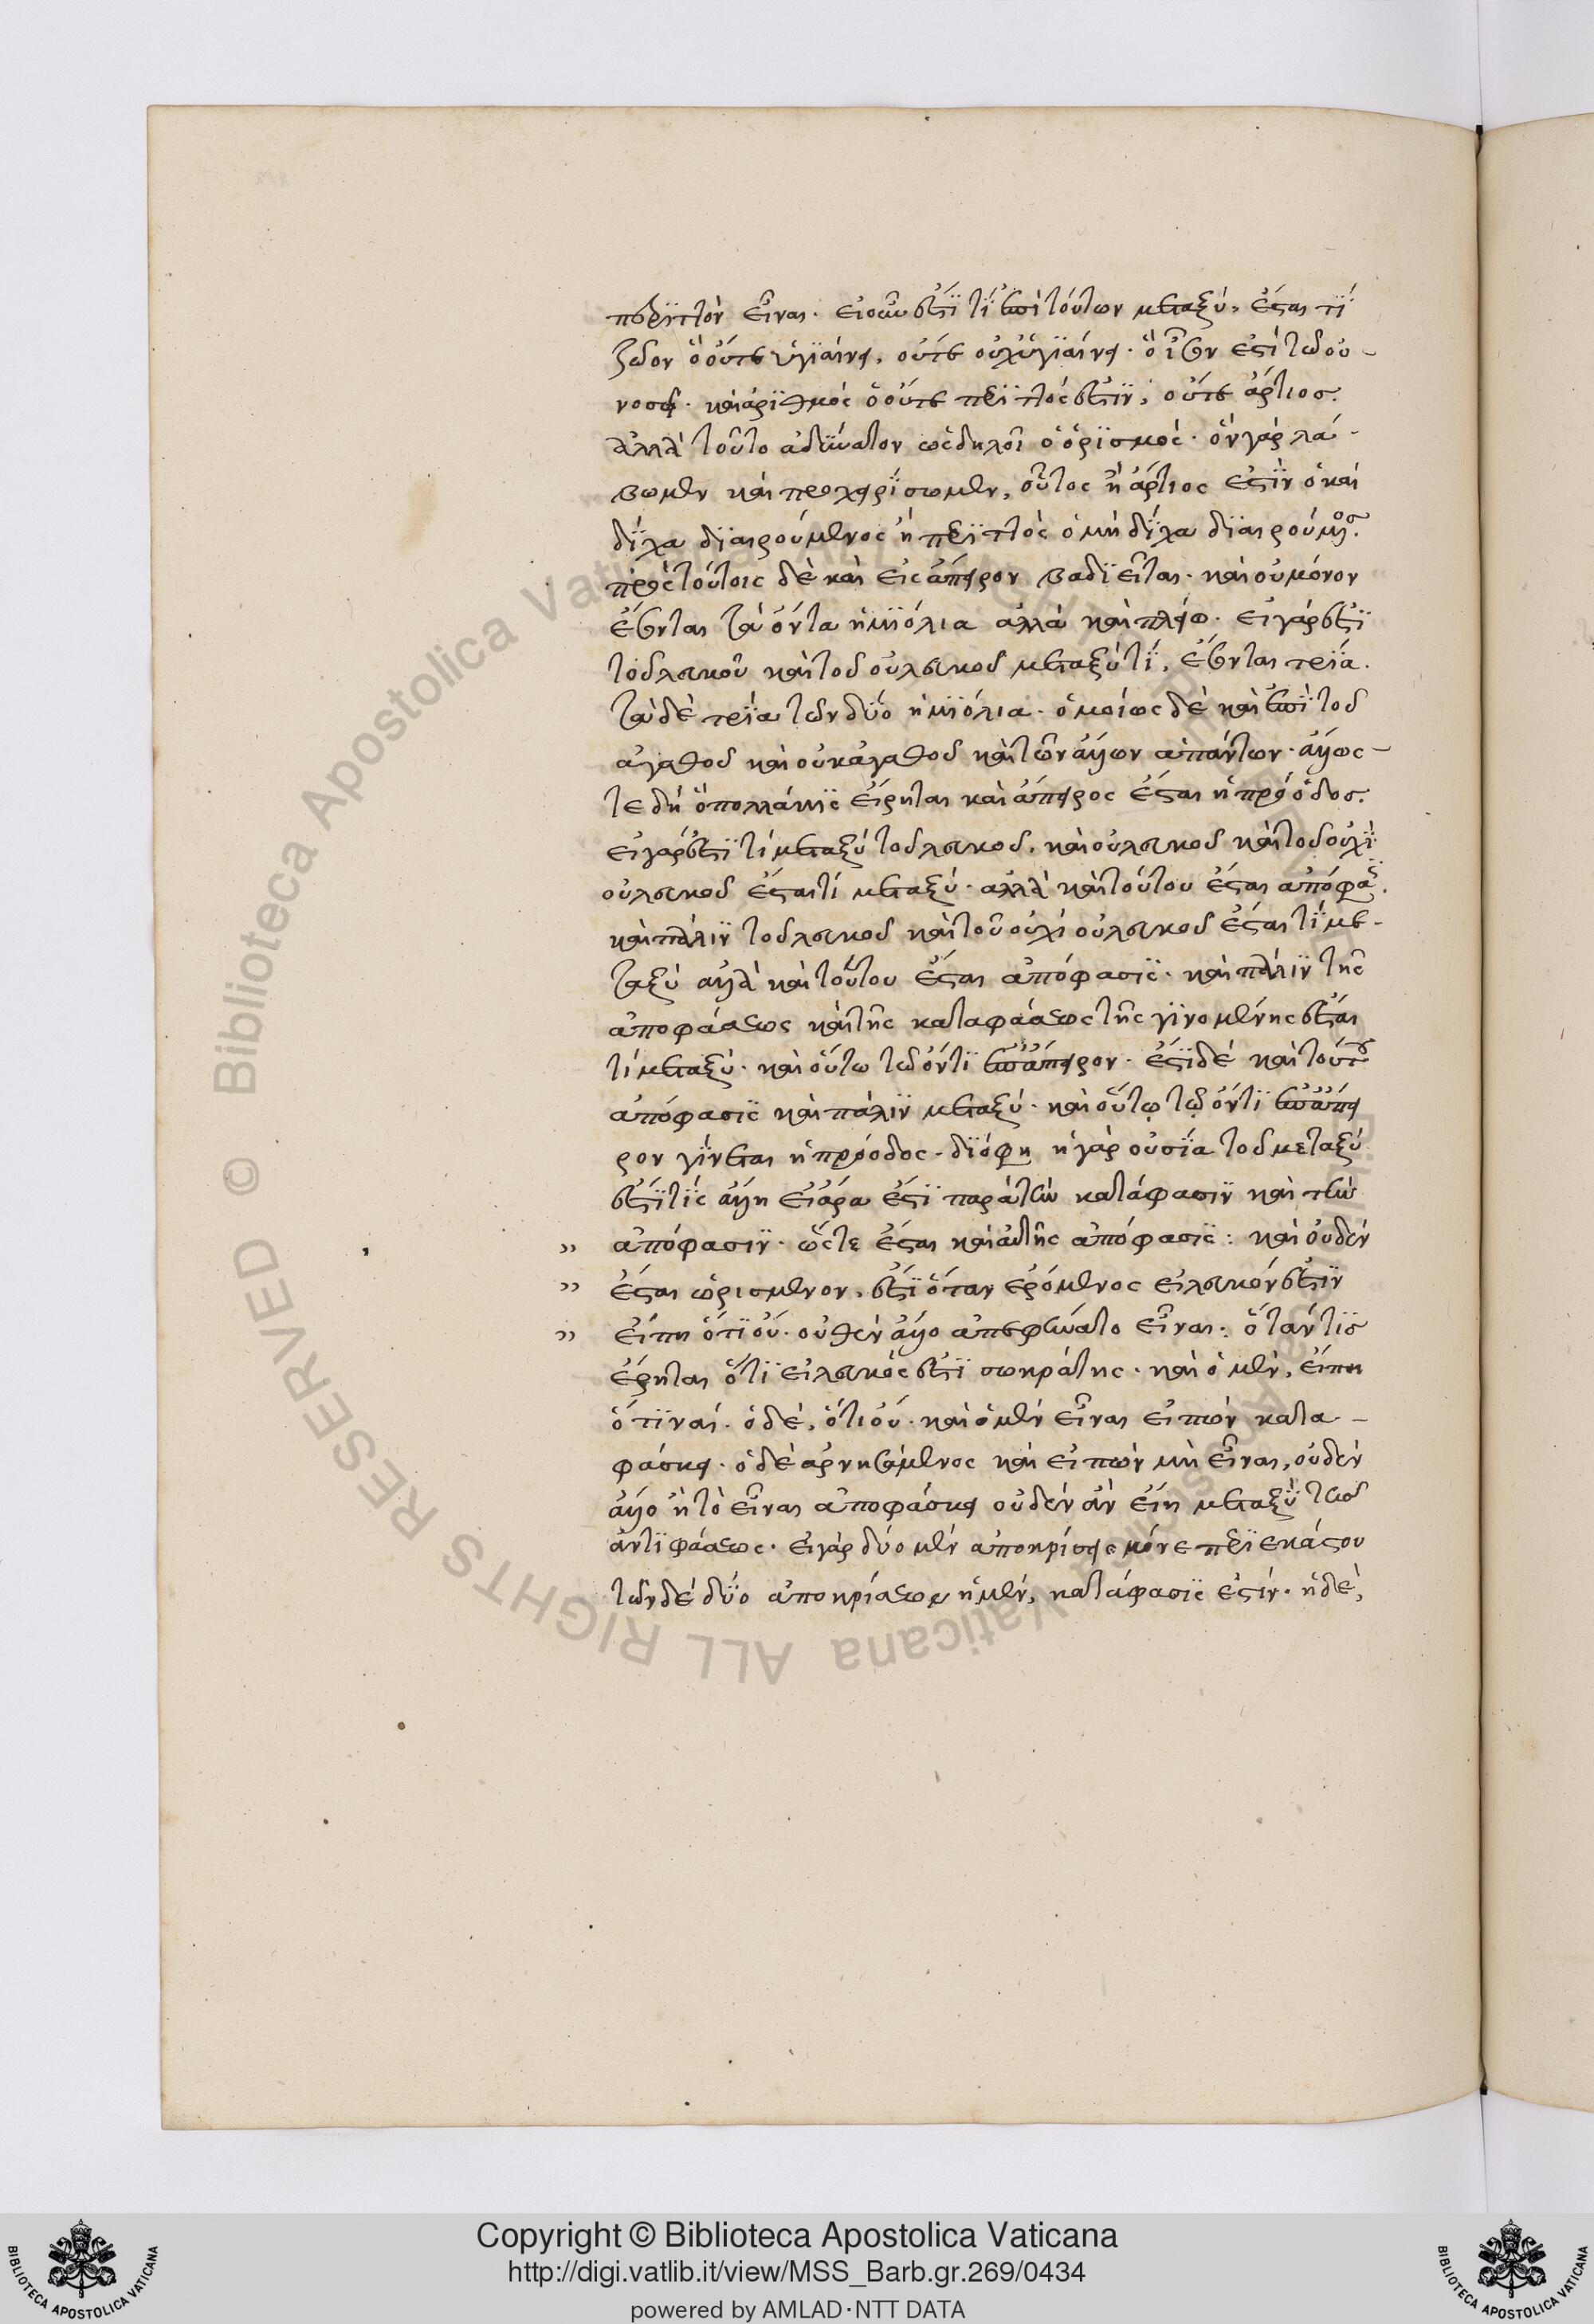 περιττὸν εἶναι. εἰ οὖν ἐστί τι ἐπὶ τούτων μεταξύ, ἔσται τί
ζῶον ὃ οὔτε ὑγιαίνει, οὔτε οὐχ ὑγιαίνει.
καὶ ἀριθμὸς ὃ οὔτε περιττός ἐστιν, οὔτε ἄρτιος.
ἀλλὰ τοῦτο ἀδύνατον ὡς δηλοῖ ὁ ὁρισμός. ὃν γὰρ λά-
βωμεν καὶ προχειρίσωμεν, οὗτος ἢ ἄρτιός ἐστιν ὁ καὶ
δίχα διαιρούμενος ἢ περιττὸς ὁ μὴ δίχα διαιρούμενος.
πρὸς τούτοις δὲ καὶ εἰς ἄπειρον βαδιεῖται. καὶ οὐ μόνον
ἔσονται τὰ ὄντα ἡμιόλια ἀλλὰ καὶ πλείω. εἰ γάρ ἐστι
τοῦ λευκοῦ καὶ τοῦ οὐ λευκοῦ μεταξύ τι, ἔσονται τρία.
τὰ δὲ τρία τῶν δύο ἡμιόλια. ὁμοίως δὲ καὶ ἐπὶ τοῦ
ἀγαθοῦ καὶ οὐκ ἀγαθοῦ καὶ τῶν ἄλλων ἁπάντων. ἄλλως
τε δὴ ὃ πολλάκις εἴρηται καὶ ἄπειρος ἔσται ἡ πρόοδος.
εἰ γάρ ἐστί τι μεταξὺ τοῦ λευκοῦ, καὶ οὐ λευκοῦ καὶ τοῦ οὐχὶ
οὐ λευκοῦ ἔσται τι μεταξύ. ἀλλὰ καὶ τούτου ἔσται ἀπόφασις.
καὶ πάλιν τοῦ λευκοῦ καὶ τοῦ οὐχὶ οὐ λευκοῦ ἔσται τι με-
ταξὺ ἀλλὰ καὶ τούτου ἔσται ἀπόφασις. καὶ πάλιν τῆς
ἀποφάσεως καὶ τῆς καταφάσεως τῆς γινομένης ἔσται
τι μεταξύ. καὶ οὕτω τῷ ὄντι ἐπ' ἄπειρον. ἔστι δὲ καὶ τούτου
ἀπόφασις καὶ πάλιν μεταξύ. καὶ οὕτῳ τῷ ὄντι ἐπ' ἄπει
ρον γίνεται ἡ πρόοδος. ἡ γὰρ οὐσία τοῦ μεταξύ
ἐστί τις ἄλλη εἰ ἄρα ἐστὶ παρὰ τὴν κατάφασιν καὶ τὴν
» ἀπόφασιν. ὥστε ἔσται καὶ αὐτῆς ἀπόφασις: καὶ οὐδὲν
» ἔσται ὡρισμένον, ἔτι ὅταν ἐρόμενος εἰ λευκόν ἐστιν
» εἴπῃ ὅτι οὔ. οὐθὲν ἄλλο ἀπεφήνατο εἶναι: ὅταν τις
ἔρηται ὅτι εἰ λευκός ἐστι σωκράτης. καὶ ὁ μὲν, εἴπῃ
ὅτι ναί. ὁ δὲ, ὅτι οὔ. καὶ ὁ μὲν εἶναι εἰπὼν κατα-
φάσκει. ὁ δὲ ἀρνησάμενος καὶ εἰπὼν μὴ εἶναι, οὐδὲν
ἄλλο ἢ τὸ εἶναι ἀποφάσκει οὐδὲν ἂν εἴη μεταξὺ τῆς
ἀντιφάσεως. εἰ γὰρ δύο μὲν ἀποκρίσεις μόνε περὶ ἑκάστου
τῶν δὲ δύο ἀποκρίσεων ἡ μὲν, κατάφασίς ἐστιν. ἡ δὲ,
Copyright © Biblioteca Apostolica Vaticana
http://digi.vatlib.it/view/MSS_Barb.gr.269/0434
powered by AMLAD·NTT DATA
BIBLIOTECA APOSTOLICA VATICANA
BIBLIOTECA APOSTOLICA VATICANA
© Biblioteca Apostolica Vaticana ALL RIGHTS RESERVED